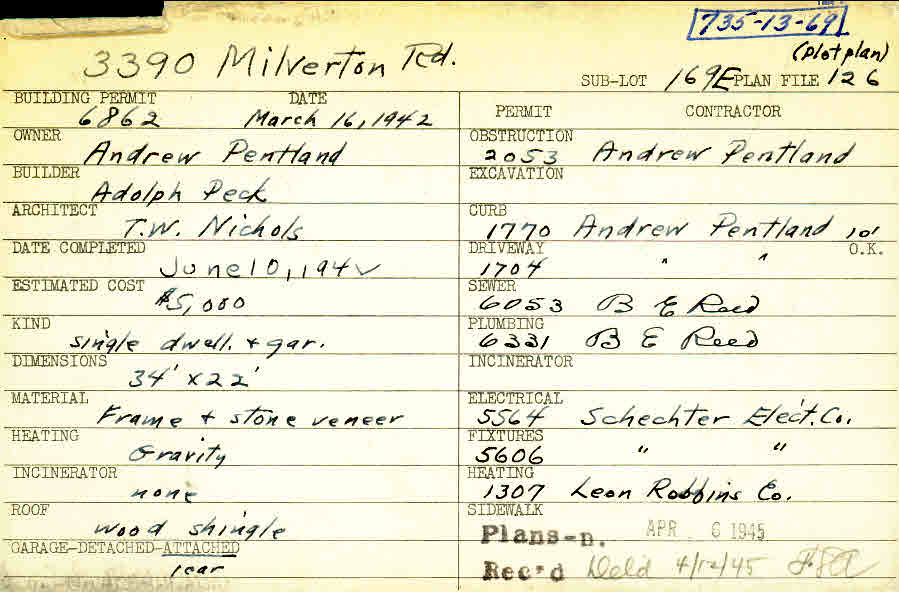 735-13-69
(plot plan)
3390 Milverton Rd.
SUB-LOT 169E PLAN FILE 126
BUILDING PERMIT DATE
6862 March 16, 1942
OWNER
Andrew Pentland
BUILDER
Adolph Peck
ARCHITECT
T.W. Nichols
DATE COMPLETED
June 10, 194✓
ESTIMATED COST
$5,000
KIND
single dwell. + gar.
DIMENSIONS
34' x 22'
MATERIAL
Frame + stone veneer
HEATING
Gravity
INCINERATOR
none
ROOF
wood shingle
GARAGE-DETACHED-ATTACHED
1 car
PERMIT CONTRACTOR
OBSTRUCTION
2053 Andrew Pentland
EXCAVATION
CURB
1770 Andrew Pentland 10'
DRIVEWAY O.K.
1704 " "
SEWER
6053 B E Reed
PLUMBING
6331 B E Reed
INCINERATOR
ELECTRICAL
5564 Schechter Elect. Co.
FIXTURES
5606 " "
HEATING
1307 Leon Robbins Co.
SIDEWALK
Plans-n. APR 6 1945
Rec'd Deld 4/12/45